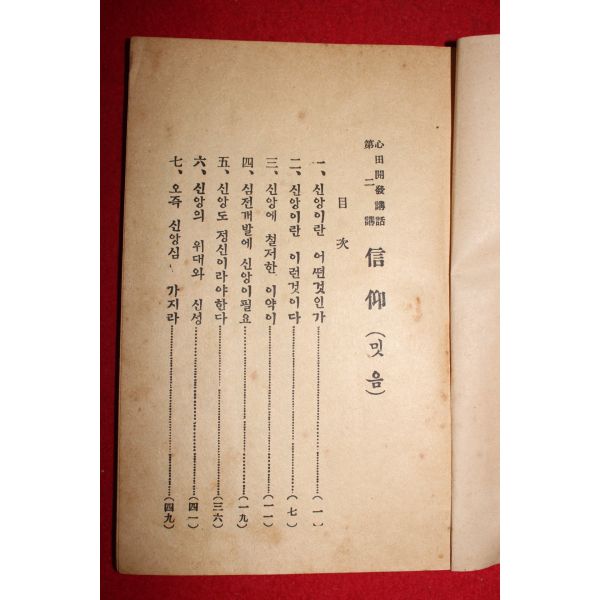 心田開發講話
第二講
信仰(밋음)
目次
一、신앙이란 어떤것인가……(一)
二、신앙이란 이런것이다……(七)
三、신앙에 철저한 이약이……(一一)
四、심전개발에 신앙이필요……(一九)
五、신앙도 정신이라야한다……(三六)
六、신앙의 위대와 신성……(四一)
七、오즉 신앙심 가지라……(四九)